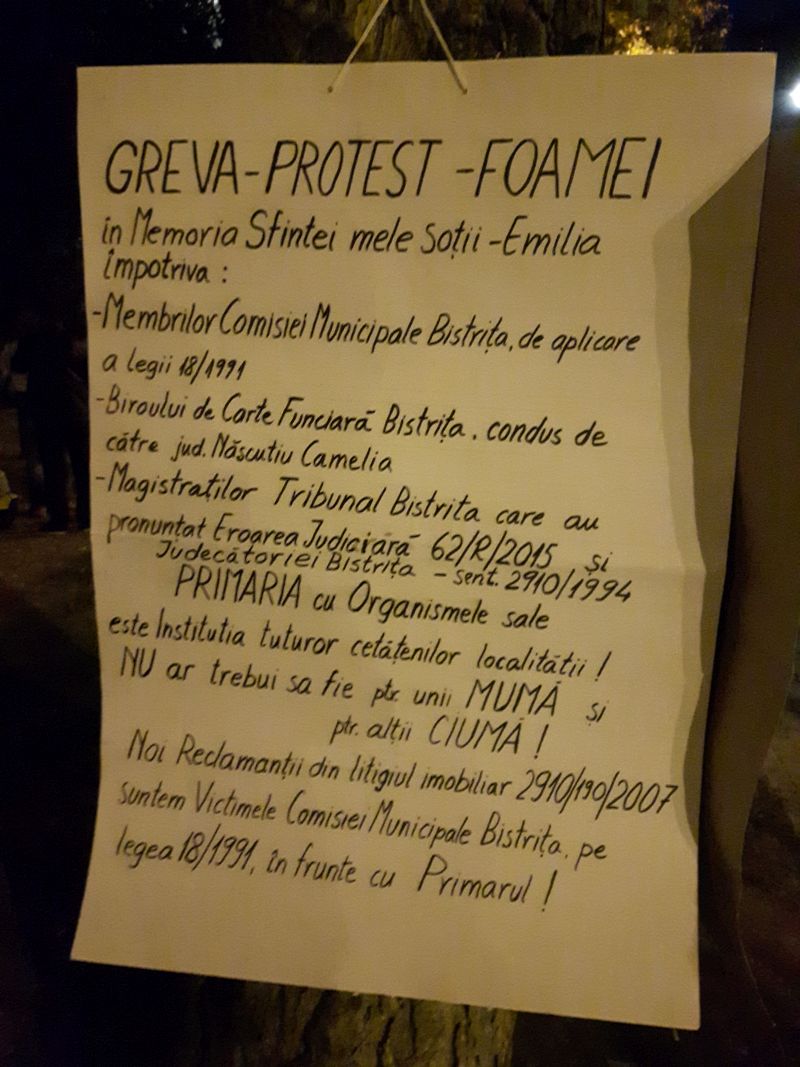 GREVA-PROTEST-FOAMEI
în Memoria Sfintei mele Soții-Emilia
împotriva :
-Membrilor Comisiei Municipale Bistrița, de aplicare
a legii 18/1991
-Biroului de Carte Funciară Bistrița, condus de
către jud. Născutiu Camelia
-Magistraților Tribunal Bistrita care au
pronuntat Eroarea Judiciară 62/R/2015 și
Judecătoriei Bistrița - sent. 2910/1994
PRIMARIA cu Organismele sale
este Institutia tuturor cetățenilor localității !
NU ar trebui sa fie ptr. unii MUMĂ și
ptr. alții CIUMĂ !
Noi Reclamanții din litigiul imobiliar 2910/190/2007
suntem Victimele Comisiei Municipale Bistrița, pe
legea 18/1991, în frunte cu Primarul !